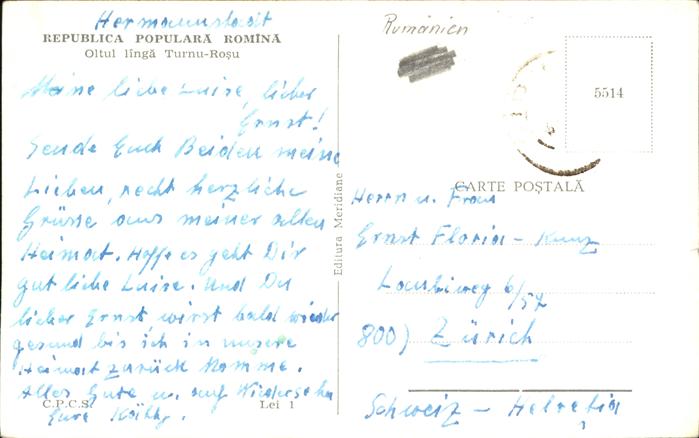 Hermannstadt
REPUBLICA POPULARĂ ROMÎNĂ
Oltul lîngă Turnu-Roşu
Meine liebe Luise, lieber
Ernst!
Sende Euch Beiden meine
Lieben, recht herzliche
Grüsse aus meiner alten
Heimat. Hoffe es geht Dir
gut liebe Luise. Und Du
lieber Ernst wirst bald wieder
gesund bis ich in unsere
Heimat zurück komme.
Alles Gute u. auf Wiedersehn
Eure Käthy.
C.P.C.S.
Lei 1
Editura Meridiane
Rumänien
5514
CARTE POŞTALĂ
Herrn u. Frau
Ernst Floria - Kunz
6/57
800) Zürich
Schweiz - Helveţia